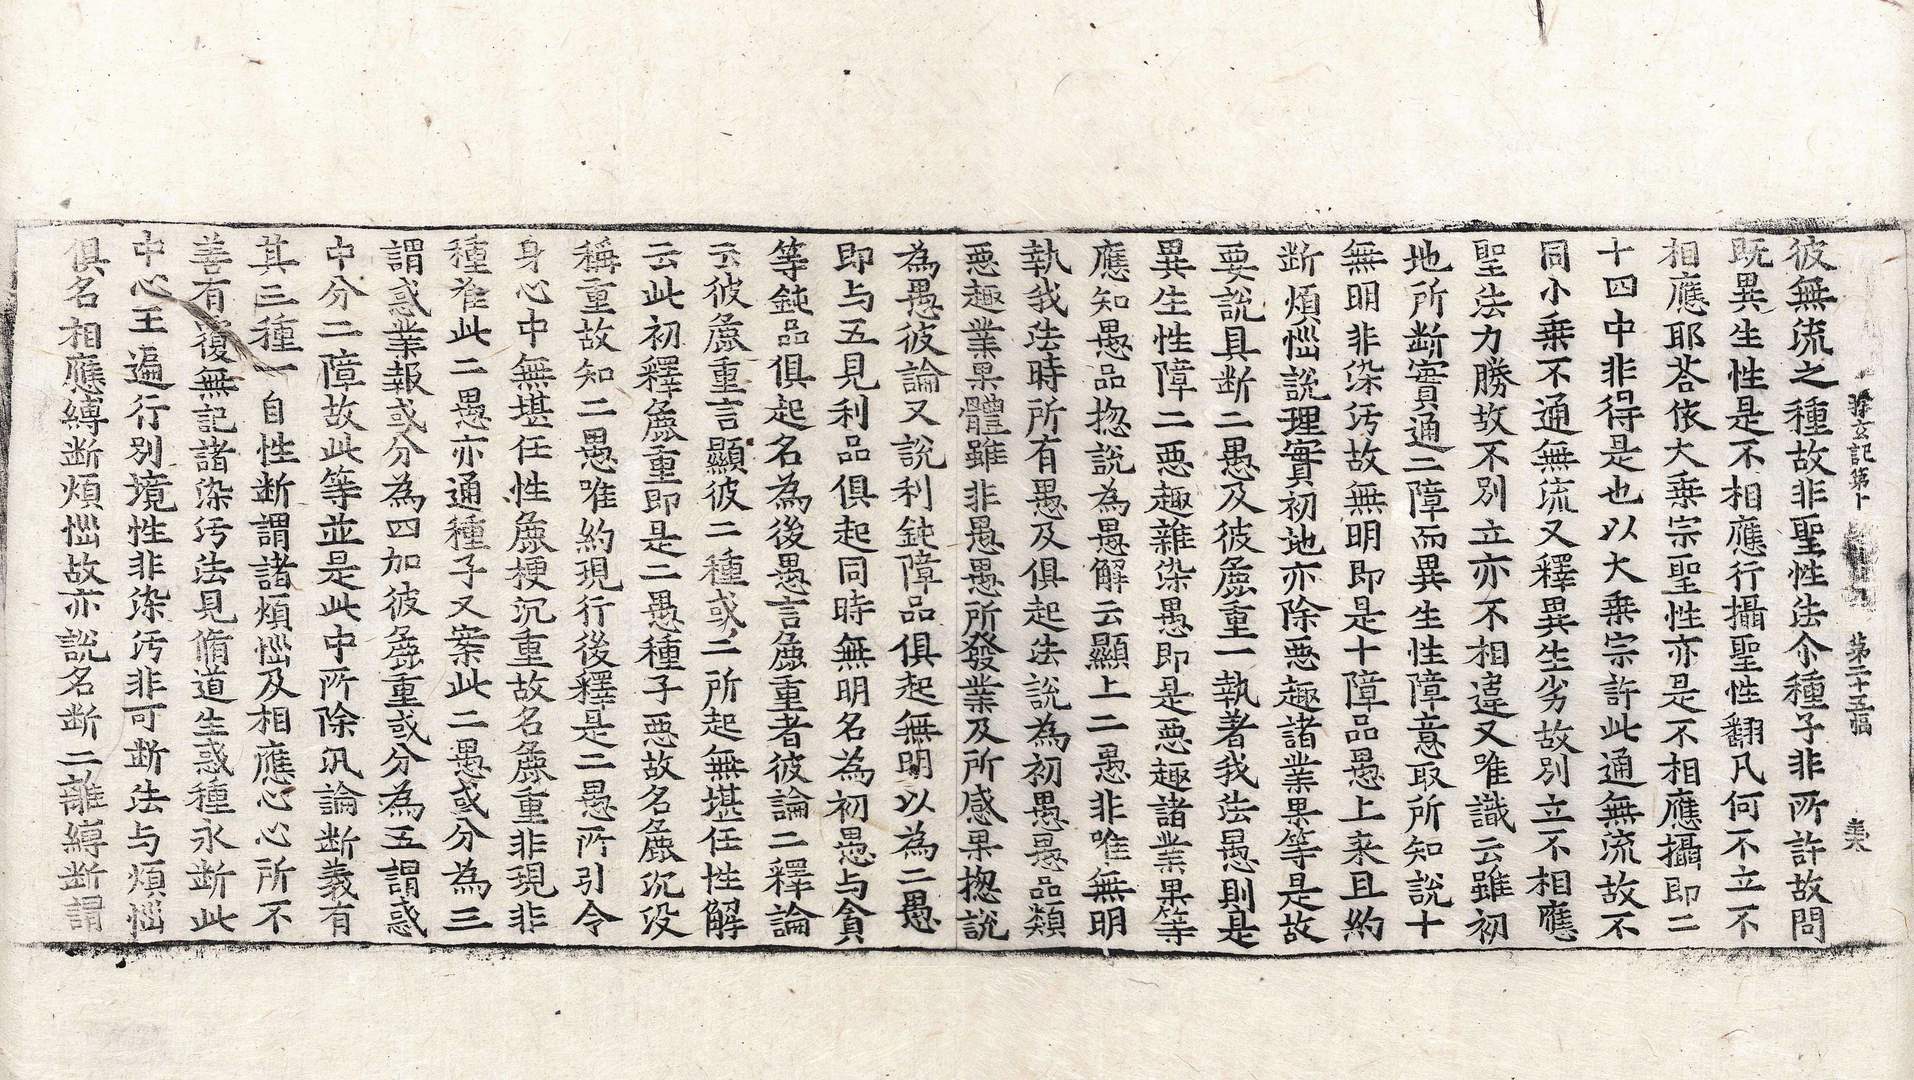 玄記第十　第二十五幅
彼無流之種故非聖性法尒種子非所許故問
既異生性是不相應行攝聖性翻凡何不立不
相應耶荅依大乗宗聖性亦是不相應攝即二
十四中非得是也以大乗宗許此通無流故不
同小乗不通無流又釋異生劣故別立不相應
聖法力勝故不別立亦不相違又唯識云雖初
地所断實通二障而異生性障意取所知說十
無明非染汚故無明即是十障品愚上来且約
断煩惱說理實初地亦除惡趣諸業果等是故
要說具断二愚及彼麁重一執著我法愚則是
異生性障二惡趣雜染愚即是惡趣諸業果等
應知愚品揔說為愚解云顯上二愚非唯無明
執我法時所有愚及俱起法說為初愚愚品類
惡趣業果體雖非愚愚所發業及所感果揔說
為愚彼論又說利鈍障品俱起無明以為二愚
即与五見利品俱起同時無明名為初愚与貪
等鈍品俱起名為後愚言麁重者彼論二釋論
云彼麁重言顯彼二種或二所起無堪任性解
云此初釋麁重即是二愚種子惡故名麁沉没
稱重故知二愚唯約現行後釋是二愚所引令
身心中無堪任性麁梗沉重故名麁重非現非
種准此二愚亦通種子又案此二愚或分為三
謂惑業報或分為四加彼麁重或分為五謂惑
中分二障故此等並是此中所除汎論断義有
其三種一自性断謂諸煩惱及相應心心所不
善有覆無記諸染汚法見脩道生惑種永断此
中心王遍行別境性非染汚非可断法与煩惱
俱名相應縛断煩惱故亦說名断二離縛断謂